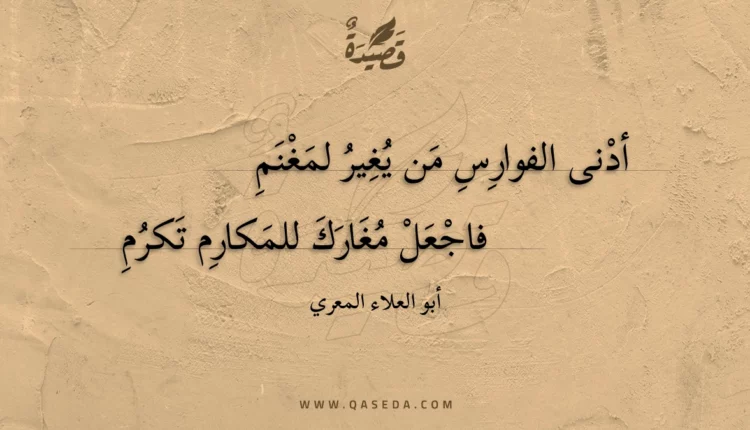 قَصِيدَةٌ
أدْنى الفوارِسِ مَن يُغِيرُ لمَغْنَمِ
فاجْعَلْ مُغَارَكَ للمَكارِمِ تَكرُمِ
أبو العلاء المعري
WWW.QASEDA.COM